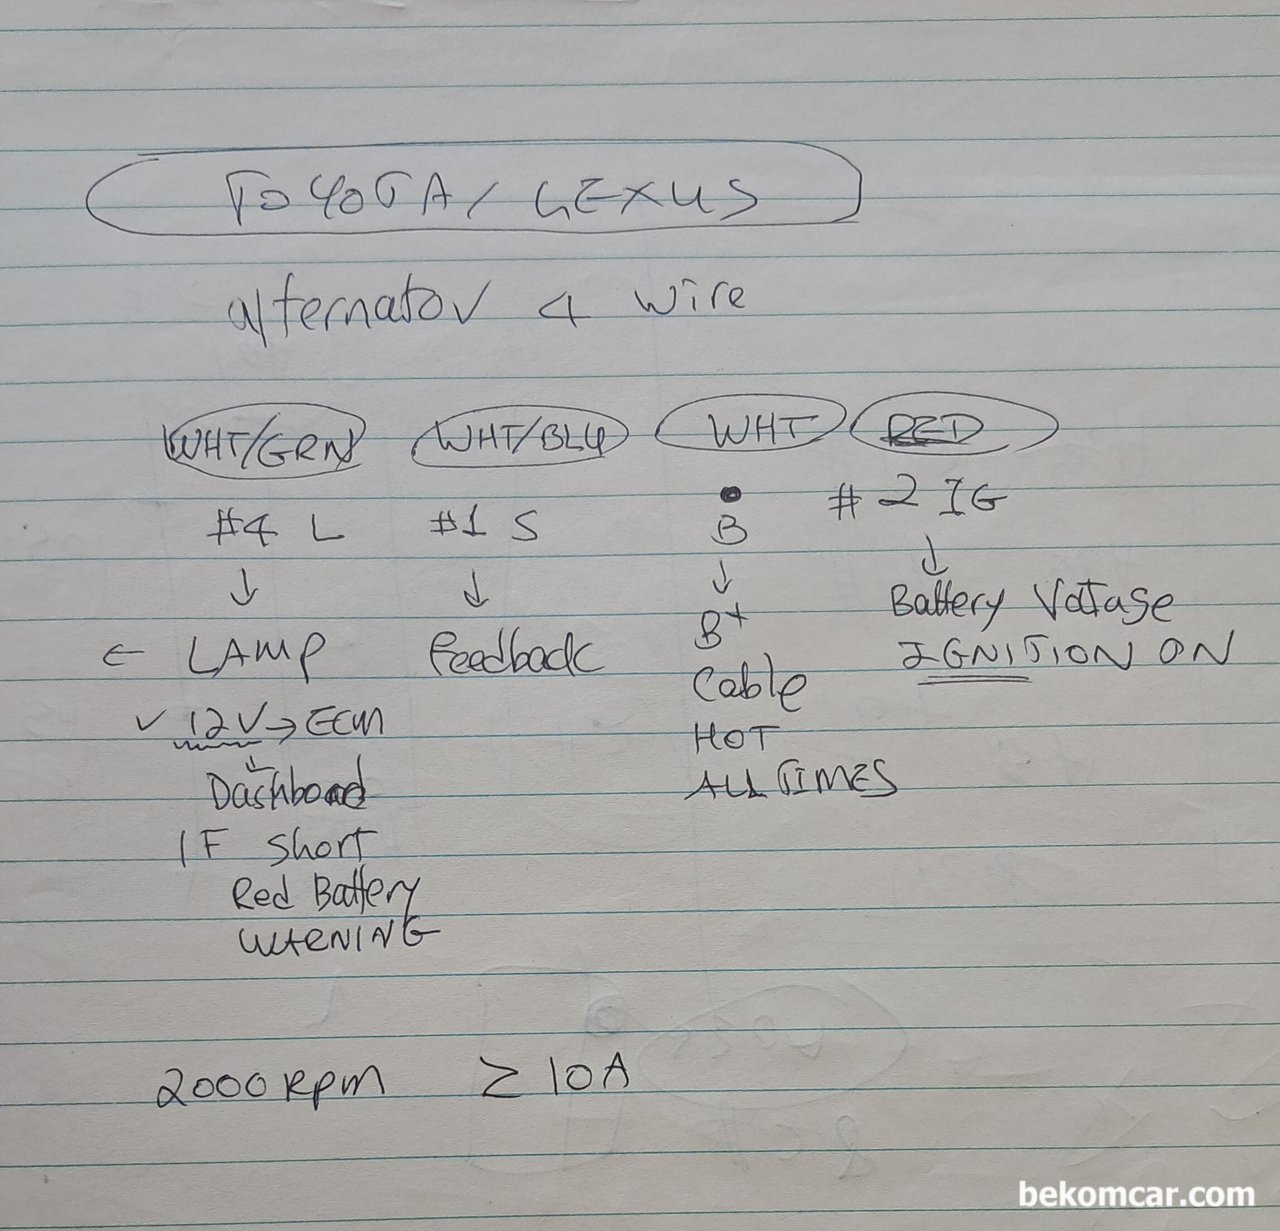 TOYOTA / LEXUS
alternator 4 wire
WHT/GRN WHT/BLU WHT RED
#4 L #1 S B #2 IG
↓ ↓ ↓ ↓
← LAMP feedback B+ Battery Voltage
Cable IGNITION ON
✓ 12V → ECM HOT
↓
Dashboad ALL TIMES
IF short
Red Battery
WARNING
2000 RPM ≥ 10A
bekomcar.com